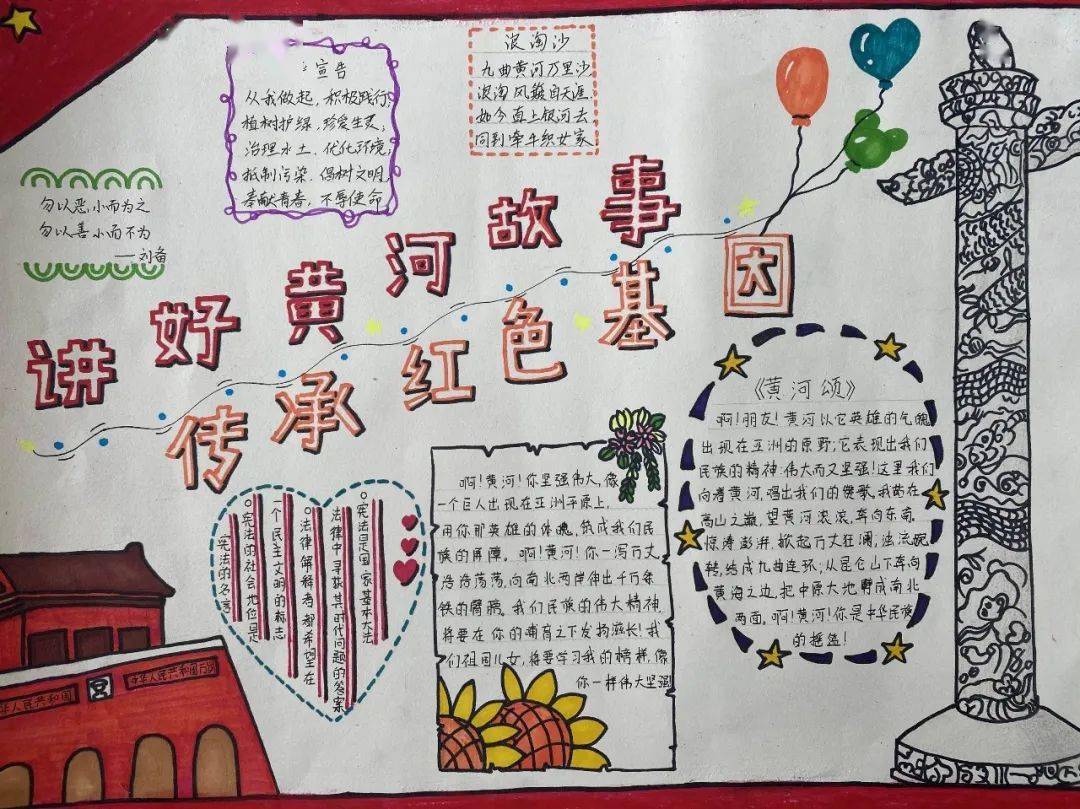 讲好黄河故事
传承红色基因
宣告
从我做起，积极践行，
植树护绿，珍爱生灵；
治理水土，优化环境，
抵制污染，倡树文明，
奉献青春，不辱使命
浪淘沙
九曲黄河万里沙
浪淘风簸自天涯.
如今直上银河去
同到牵牛织女家
勿以恶小而为之
勿以善小而不为
——刘备
宪法是国家基本大法
法律中寻求其时代问题的答案
法律解释者都希望在
一个民主文明的标志
宪法的社会地位是
宪法的名言
啊！黄河！你坚强伟大，像
一个巨人出现在亚洲平原上，
用你那英雄的体魄，筑成我们民
族的屏障。啊！黄河！你一泻万丈，
浩浩荡荡，向南北两岸伸出千万条
铁的臂膀。我们民族的伟大精神，
将要在你的哺育之下发扬滋长！我
们祖国儿女，将要学习我的榜样，像
你一样伟大坚强
《黄河颂》
啊！朋友！黄河以它英雄的气魄
出现在亚洲的原野；它表现出我们
民族的精神：伟大而又坚强！这里我们
向着黄河，唱出我们的赞歌，我站在
高山之巅，望黄河滚滚，奔向东南。
惊涛澎湃，掀起万丈狂澜，浊流宛
转，结成九曲连环；从昆仑山下奔向
黄海之边，把中原大地劈成南北
两面。啊！黄河！你是中华民族
的摇篮！
华人民共和国
中华人民共和国万岁